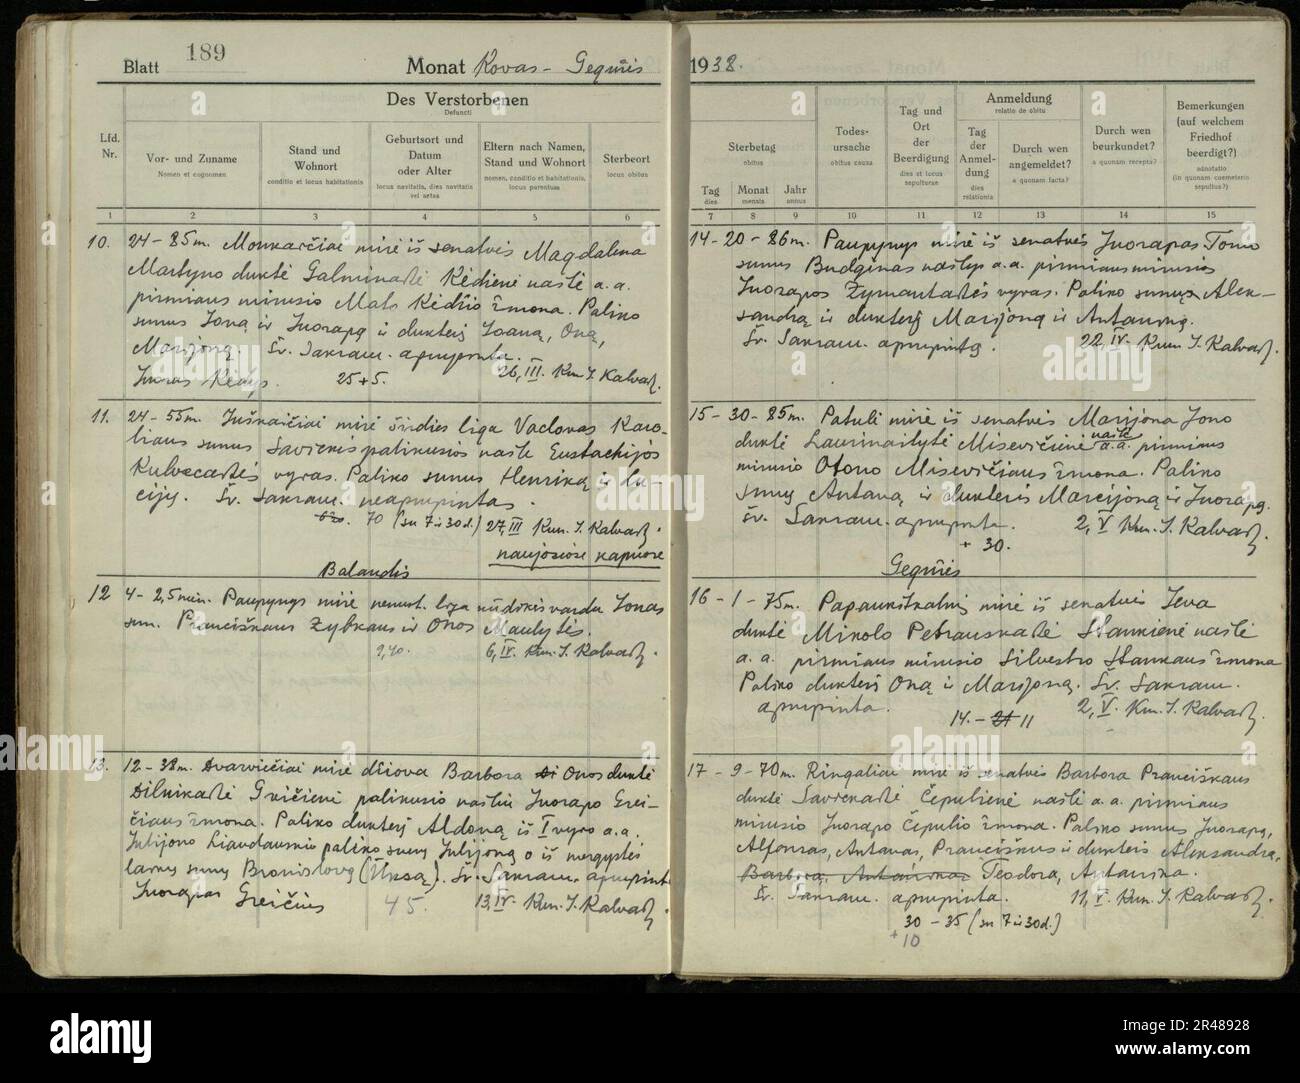 189
Blatt
Monat Kovas - Gegužis
1938.
Des Verstorbenen
Defuncti
Lfd. Nr.
Vor- und Zuname
Nomen et cognomen
Stand und Wohnort
conditio et locus habitationis
Geburtsort und Datum oder Alter
locus navitatis, dies navitatis vel aetas
Eltern nach Namen, Stand und Wohnort
nomen, conditio et habitationis, locus parentum
Sterbeort
locus obitus
1 2 3 4 5 6
10. 24 - 85m. mirė iš senatvės Magdalena
Martyno duktė Galminaitė Kėdienė našlė a.a.
pirmiaus mirusio Mato Kėdžio žmona. Paliko
sunus Joną ir Juozapą ir dukterį Joaną, Oną,
Marijoną. Šv. Sakram. aprupinta.
Juozas Kėdys. 25+5. 26,III Kun. J. Kalvait.
11. 24 - 55m. Juškaičiai mirė širdies liga Vaclovas Karo-
liaus sunus palikusios našlė Eustachijos
vyras. Paliko sunus Henriką ir Lu-
ciją. Šv. Sakram. neaprupintas.
70 (su 7 ir 30d.) 27,III Kun. J. Kalvait.
naujosiose kapuose
Balandis
12 4 - 2,5mėn. Paupynys mirė liga kūdikis vardu Jonas
sun. Pranciškaus ir Onos
2,40. 6,IV. Kun. J. Kalvait.
13. 12 - 38m. Dvarviečiai mirė džiova Barbora Onos duktė
Dilnikaitė Greičienė palikusio našliu Juozapo Grei-
čiaus žmona. Paliko dukterį Aldoną iš I vyro a.a.
Julijono paliko sunų Julijoną o iš mergystės
sunų Bronislovą Šv. Sakram. aprupinta
Juozapas Greičius 45. 13,IV. Kun. J. Kalvait.
Sterbetag
obitus
Tag
dies
Monat
mensis
Jahr
annus
Todes-ursache
obitus causa
Tag und Ort der Beerdigung
dies et locus sepulturae
Anmeldung
relatio de obitu
Tag der Anmel-dung
dies relationis
Durch wen angemeldet?
a quonam facta?
Durch wen beurkundet?
a quonam recepta?
Bemerkungen (auf welchem Friedhof beerdigt?)
adnotatio (in quonam coemeterio sepultus?)
7 8 9 10 11 12 13 14 15
14 - 20 - 86m. Paupynys mirė iš senatvės Juozapas Tomo
sunus Budginas našlys a.a. pirmiaus mirusios
Juozapos Zymantaitės vyras. Paliko sunus Alek-
sandrą ir dukterį Marijoną ir Antaniną.
Šv. Sakram. aprupintas. 22,IV. Kun. J. Kalvait.
15 - 30 - 85m. Patuli mirė iš senatvės Marijona Jono
duktė Laurinaitytė Misevičienė našlė a.a. pirmiaus
mirusio Otono Misevičiaus žmona. Paliko
sunų Antaną ir dukteris Marcijoną ir Juozapą.
Šv. Sakram. aprupinta. 2,V Kun. J. Kalvait.
+ 30.
Gegužis
16 - 1 - 75m. mirė iš senatvės Ieva
duktė Mikolo Petrauskaitė Stankienė našlė
a.a. pirmiaus mirusio Silvestro Stankaus žmona
Paliko dukterį Oną ir Marijoną. Šv. Sakram.
aprupinta. 14. - 21 11 2,V. Kun. J. Kalvait.
17 - 9 - 70m. Ringaliai mirė iš senatvės Barbora Pranciškaus
duktė Čepulienė našlė a.a. pirmiaus
mirusio Juozapo Čepulio žmona. Paliko sunus Juozapą,
Alfonsas, Antanas, Pranciškus ir dukteris Aleksandra,
Barbora, Antanina Teodora, Antanina.
Šv. Sakram. aprupinta. 11,V. Kun. J. Kalvait.
30 - 35 (su 7 ir 30d.)
+ 10
alamy
Image ID: 2R48928
www.alamy.com